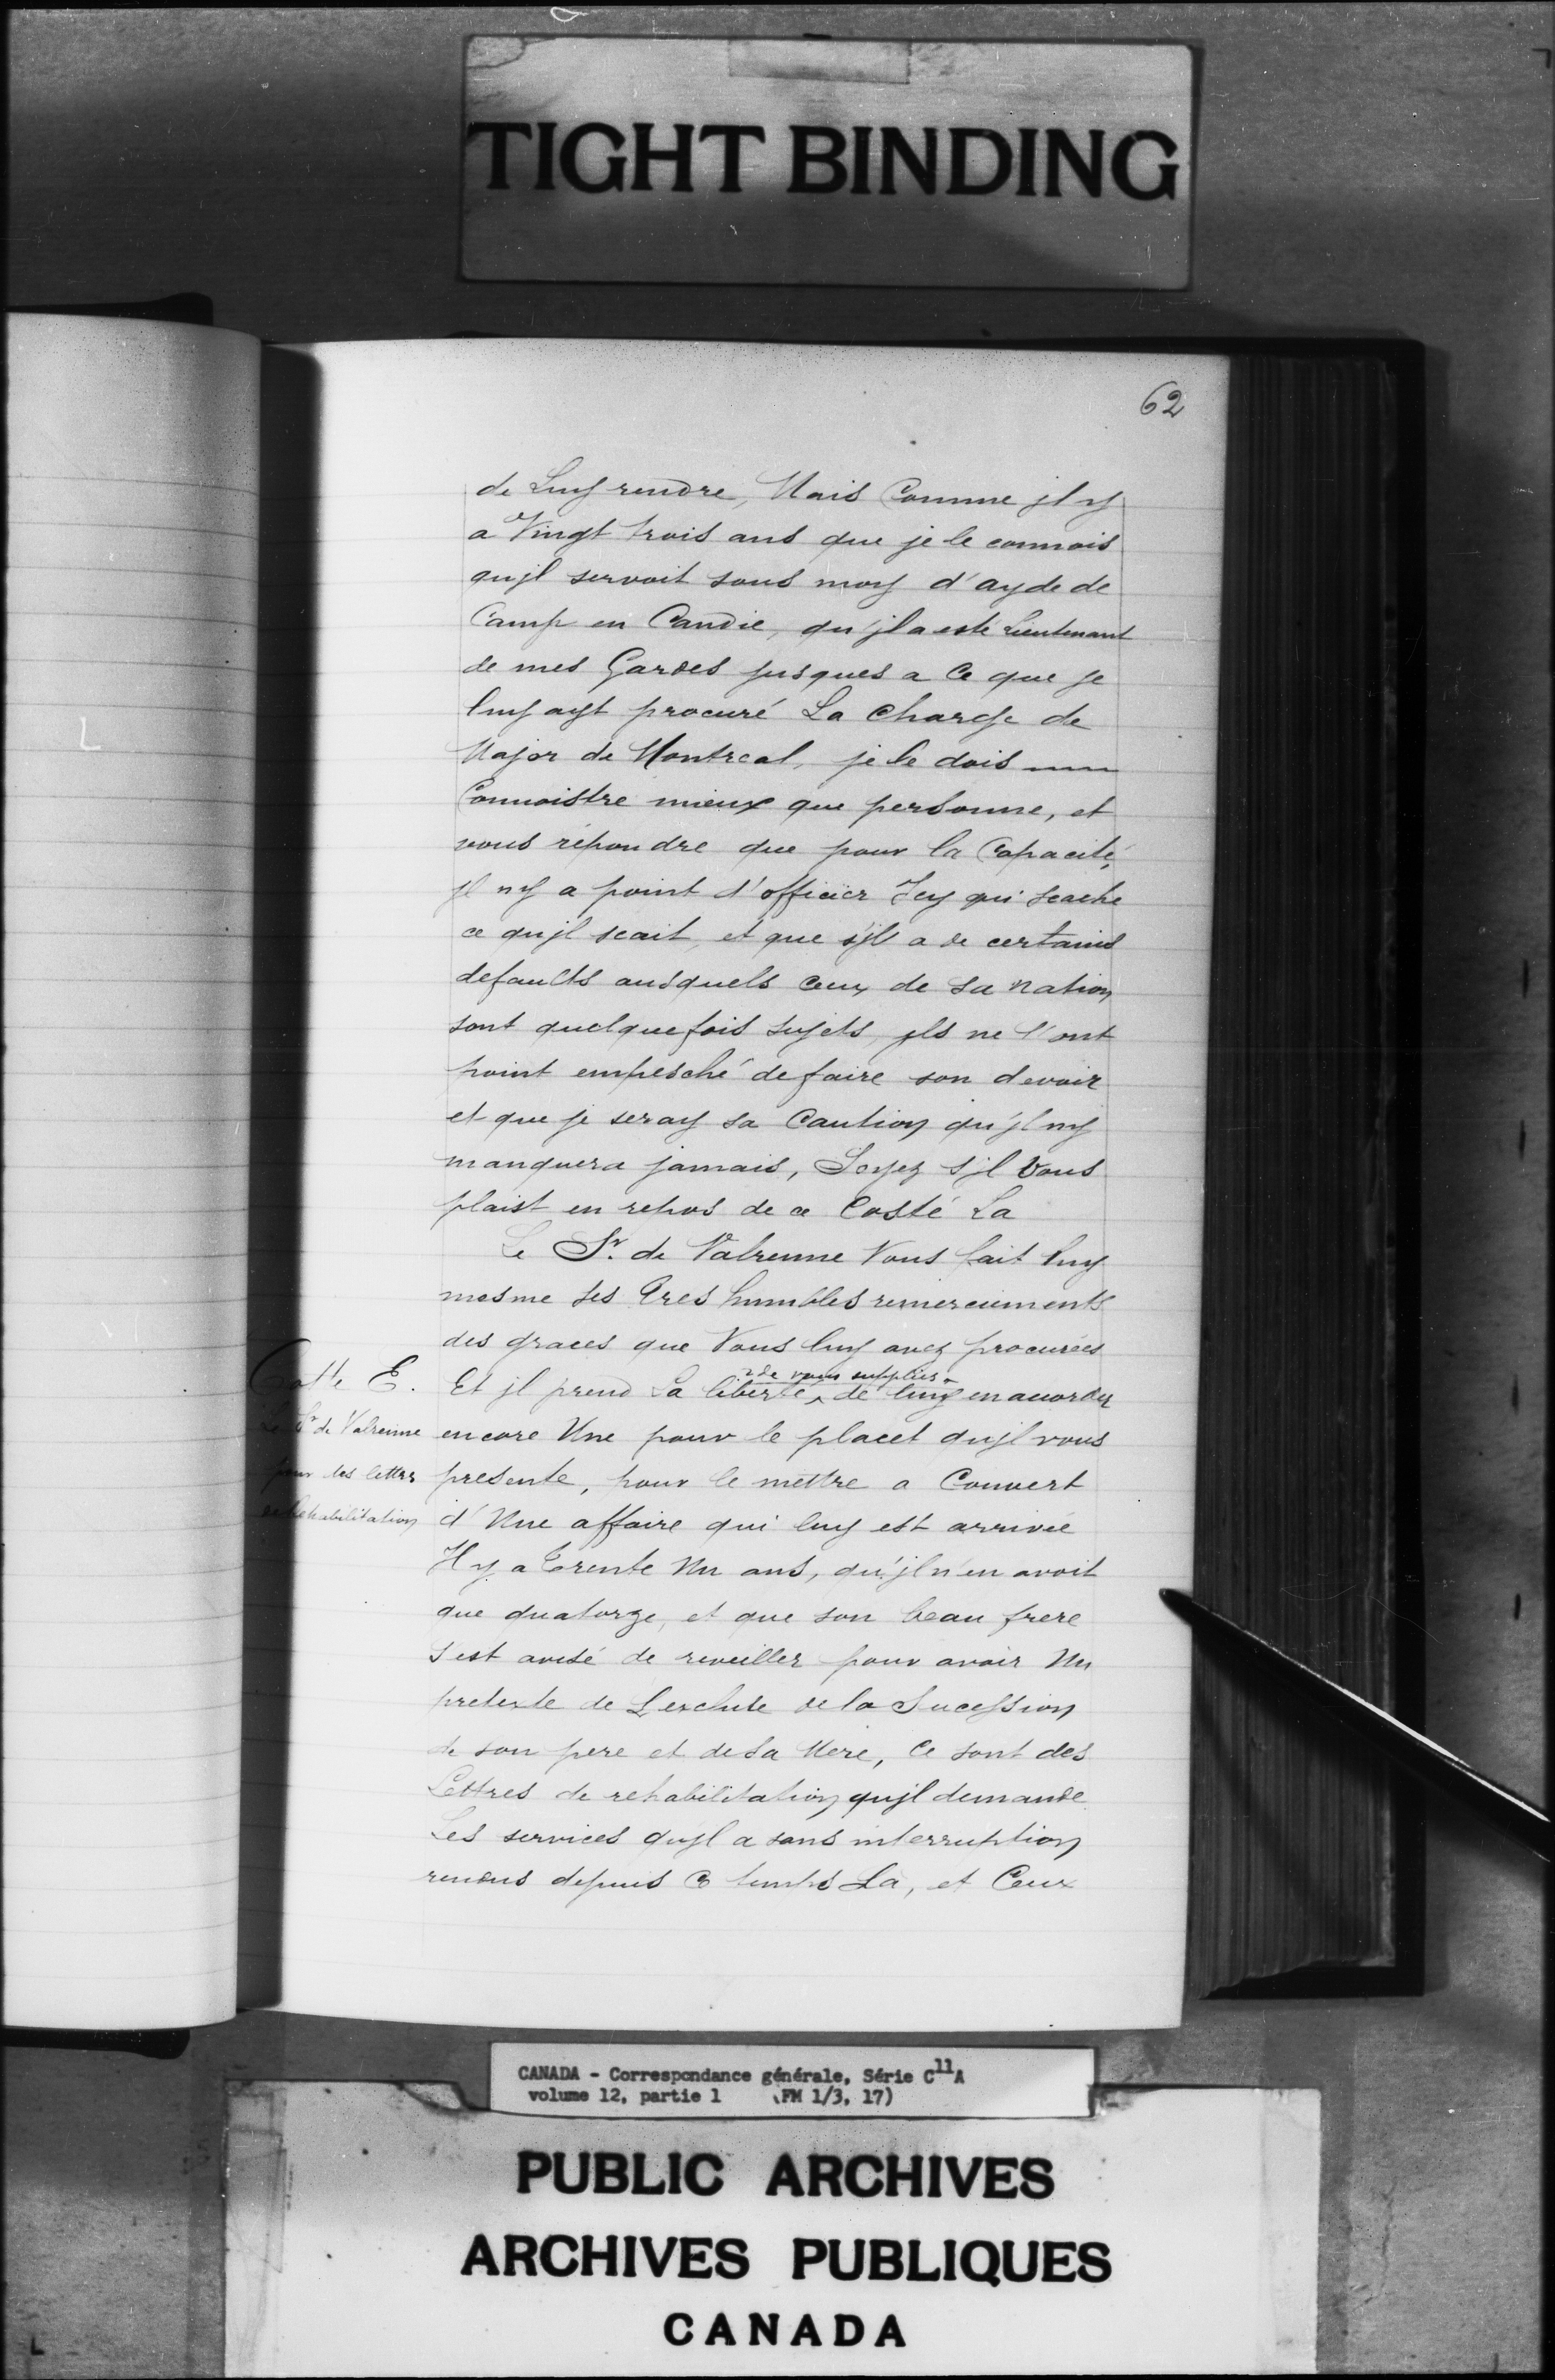 TIGHT BINDING
62
de Luy rendre, Mais Comme jl y
a Vingt trois ans que je le connois
qujl servoit sous moy d'ayde de
Camp en Candie, qu'jl a esté Lieutenant
de mes Gardes jusques a Ce que je
luy ayt procuré La Charge de
Major de Montreal, je le dois
Connoistre mieux que personne, et
vous répondre que pour la Capacité,
jl ny a point d'officier Jcy qui scache
ce qujl scait, et que s'jl a de certains
defaults ausquels ceux de sa nation
sont quelquefois sujets, jls ne l'ont
point empesché de faire son devoir
et que je seray sa Caution qu'jl ny
manquera jamais, Soyez s'jl Vous
plaist en repos de ce Costé La
Le Sr. de Valrenne Vous fait luy
mesme ses tres humbles remerciements
des graces que Vous luy avez procurées
Cotte E.
Et jl prend La liberté ^ de vous supplier de luy en accorder
Le Sr de Valrenne
encore Une pour le placet qujl vous
pour des lettres
presente, pour le mettre a Couvert
de Rehabilitation
d'Une affaire qui luy est arrivée
Il y a trente Un ans, qu'jl n'en avoit
que quatorze, et que son beau frere
s'est avisé de reveiller pour avoir Un
pretexte de L'exclute de la Sucession
de son pere et de sa Mere, Ce sont des
Lettres de rehabilitation qujl demande
Les services qujl a sans interruption
rendus depuis Ce temps La, et Ceux
CANADA - Correspondance générale, Série C11A
volume 12, partie 1 (FM 1/3, 17)
PUBLIC ARCHIVES
ARCHIVES PUBLIQUES
CANADA